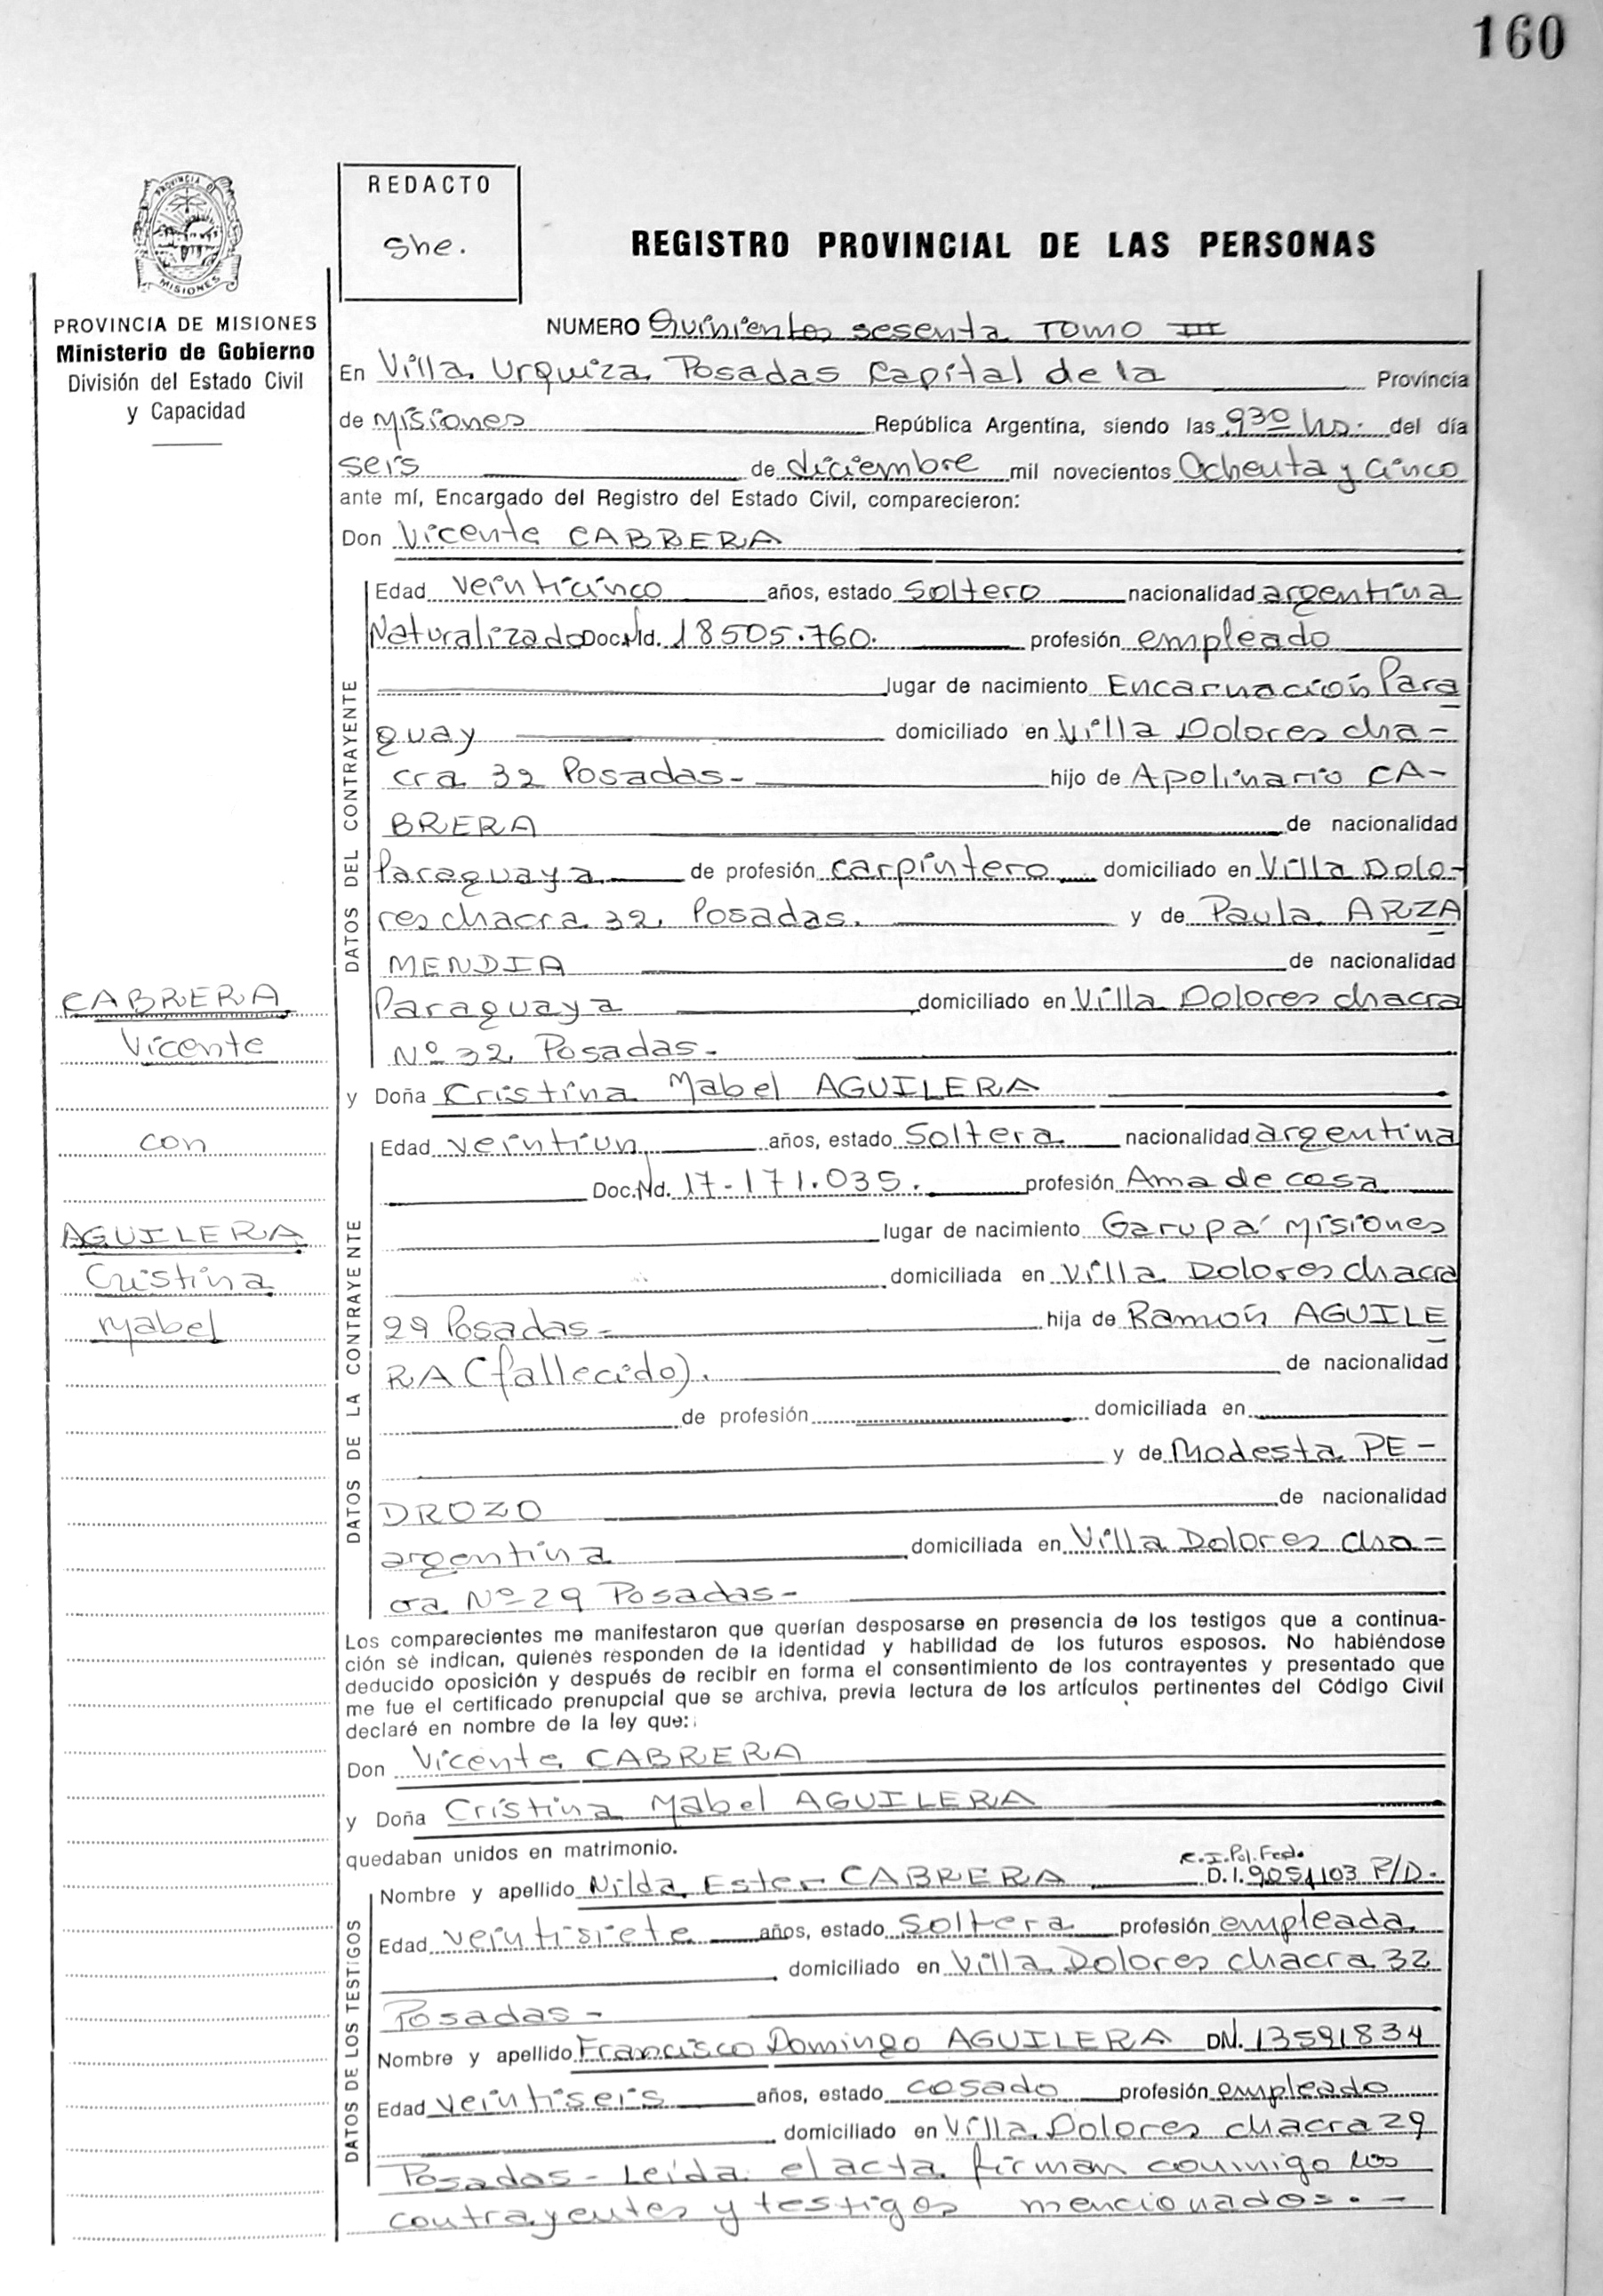 160
PROVINCIA DE
MISIONES
REDACTO
She.
REGISTRO PROVINCIAL DE LAS PERSONAS
PROVINCIA DE MISIONES
Ministerio de Gobierno
División del Estado Civil
y Capacidad
NUMERO Quinientos sesenta TOMO III
En Villa Urquiza Posadas Capital de la Provincia
de Misiones República Argentina, siendo las 930 hs. del día
seis de diciembre mil novecientos Ochenta y cinco
ante mí, Encargado del Registro del Estado Civil, comparecieron:
Don Vicente CABRERA
DATOS DEL CONTRAYENTE
Edad veinticinco años, estado Soltero nacionalidad argentina
Naturalizado Doc.Nd. 18505.760. profesión empleado
lugar de nacimiento Encarnación Para
guay domiciliado en Villa Dolores cha-
cra 32 Posadas- hijo de Apolinario CA-
BRERA de nacionalidad
Paraguaya de profesión carpintero domiciliado en Villa Dolo-
res chacra 32 Posadas. y de Paula ARZA
MENDIA de nacionalidad
Paraguaya domiciliado en Villa Dolores chacra
Nº 32 Posadas-
CABRERA
Vicente
con
AGUILERA
Cristina
Mabel
y Doña Cristina Mabel AGUILERA
DATOS DE LA CONTRAYENTE
Edad veintiun años, estado Soltera nacionalidad argentina
Doc.Nd. 17-171.035. profesión Ama de casa
lugar de nacimiento Garupá Misiones
domiciliada en Villa Dolores chacra
29 Posadas- hija de Ramón AGUILE
RA (fallecido). de nacionalidad
de profesión domiciliada en
y de Modesta PE-
DROZO de nacionalidad
argentina domiciliada en Villa Dolores cha-
cra Nº 29 Posadas-
Los comparecientes me manifestaron que querían desposarse en presencia de los testigos que a continua-
ción se indican, quienes responden de la identidad y habilidad de los futuros esposos. No habiéndose
deducido oposición y después de recibir en forma el consentimiento de los contrayentes y presentado que
me fue el certificado prenupcial que se archiva, previa lectura de los artículos pertinentes del Código Civil
declaré en nombre de la ley que:
Don Vicente CABRERA
y Doña Cristina Mabel AGUILERA
quedaban unidos en matrimonio.
DATOS DE LOS TESTIGOS
C.I.Pol.Fed.
Nombre y apellido Nilda Ester CABRERA D.I. 9051103 P/D.
Edad veintisiete años, estado soltera profesión empleada
domiciliado en Villa Dolores chacra 32
Posadas-
Nombre y apellido Francisco Domingo AGUILERA DN. 13591834
Edad veintiseis años, estado casado profesión empleado
domiciliado en Villa Dolores chacra 29
Posadas- Leída el acta firman conmigo los
contrayentes y testigos mencionados.-